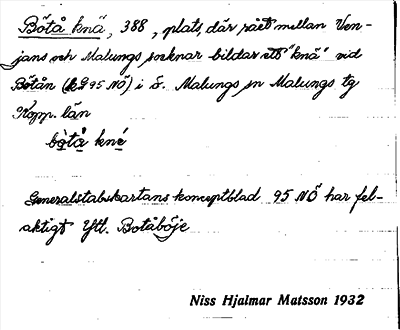 Bötå knä, 388, plats, där rået mellan Ven-
jans och Malungs socknar bildar ett "knä" vid
Bötån (k G 95 NÖ) i Ö. Malungs sn Malungs tg
Kopp. län
bòtå kné
Generalstabskartans konceptblad 95 NÖ har fel-
aktigt Yttl. Botåböje
Niss Hjalmar Matsson 1932